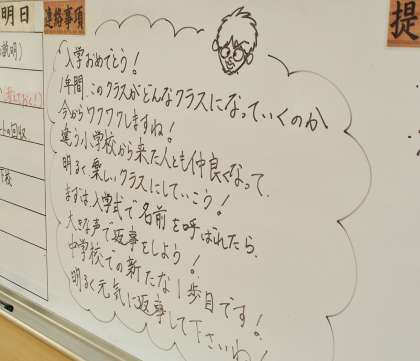 明日
連絡事項
提
説明）
入学おめでとう！
1年間、このクラスがどんなクラスになっていくのか
今からワクワクしますね！
違う小学校から来た人とも仲良くなって、
明るく楽しいクラスにしていこう！
まずは入学式で名前を呼ばれたら、
大きな声で返事をしよう！
中学校での新たな1歩目です！
明るく元気に返事して下さいね！